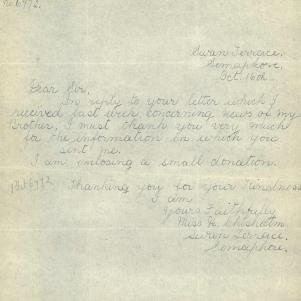 No 6972.
Swan Terrace.
Semaphore.
Oct. 16th.
Dear Sir.
In reply to your letter which I
received last week concerning news of my
Brother, I must thank you very much
for the information in which you
sent me.
I am enclosing a small donation.
Thanking you for your kindness
I am
Yours Faithfully
Miss H. Chisholm.
Swan Terrace.
Semaphore.